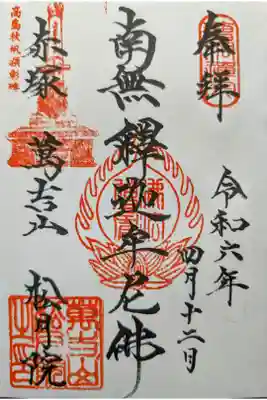 奉拝
令和六年
四月十二日
南無釋迦牟尼佛
高島秋帆顕彰碑
赤塚 萬吉山 松月院